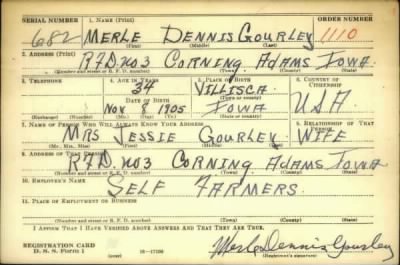 SERIAL NUMBER 1. NAME (Print) ORDER NUMBER
682 MERLE DENNIS GOURLEY 1110
(First) (Middle) (Last)
2. ADDRESS (Print)
RFD. NO3 CORNING ADAMS IOWA
(Number and street or R. F. D. number) (Town) (County) (State)
3. TELEPHONE 4. AGE IN YEARS 5. PLACE OF BIRTH 6. COUNTRY OF CITIZENSHIP
34 VILLISCA
DATE OF BIRTH (Town or county)
NOV 8 1905 IOWA USA
(Exchange) (Number) (Mo.) (Day) (Yr.) (State or country)
7. NAME OF PERSON WHO WILL ALWAYS KNOW YOUR ADDRESS 8. RELATIONSHIP OF THAT PERSON
MRS JESSIE GOURLEY WIFE
(Mr., Mrs., Miss) (First) (Middle) (Last)
9. ADDRESS OF THAT PERSON
RFD. NO3 CORNING ADAMS IOWA
(Number and street or R. F. D. number) (Town) (County) (State)
10. EMPLOYER'S NAME
SELF FARMERS.
11. PLACE OF EMPLOYMENT OR BUSINESS
(Number and street or R. F. D. number) (Town) (County) (State)
I AFFIRM THAT I HAVE VERIFIED ABOVE ANSWERS AND THAT THEY ARE TRUE.
REGISTRATION CARD
D. S. S. Form 1 Merle Dennis Gourley
(Registrant's signature)